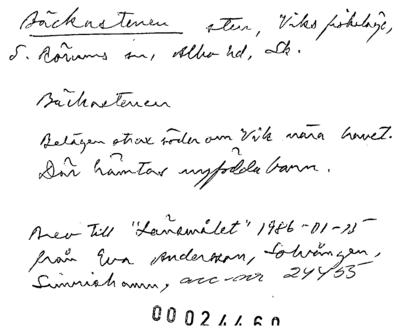 Bäckastenen sten, Viks fiskeläge,
S. Rörums sn, Albo hd, Sk.
Bäckastenen
Belägen strax söder om Vik nära havet.
Där hämtas nyfödda barn.
Brev till "Lansmålet" 1986-01-15
från Eva Andersson, Solvängen,
Simrishamn, acc-nr 24455
00024460